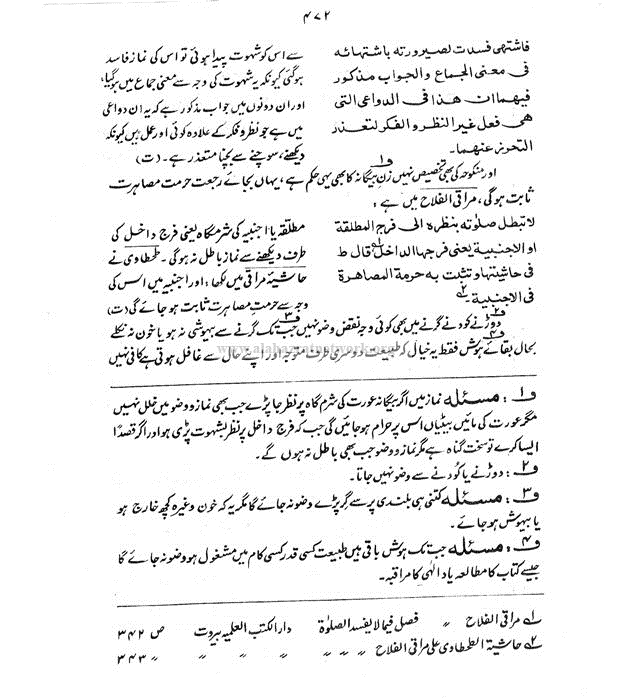 ۴۷۲
فاشتهی فسدت لصیرورته باشتهائه
فی معنی الجماع والجواب مذکور
فیهما ان هذا فی الدواعی التی
هی فعل غیر النظر والفکر لتعذر
التحرز عنهما۔
سے اس کو شہوت پیدا ہوئی تو اس کی نماز فاسد
ہوگئی کیونکہ یہ شہوت کی وجہ سے معنی جماع میں ہوگیا،
اور ان دونوں میں جواب مذکور ہے کہ یہ ان دواعی
میں ہے جو نظر و فکر کے علاوہ کوئی اور عمل ہیں کیونکہ
دیکھنے، سوچنے سے بچنا متعذر ہے۔ (ت)
اور منکوحہ کی بھی تخصیص نہیں زنِ بیگانہ کا بھی یہی حکم ہے، یہاں بجائے رجعت حرمت مصاہرت
ثابت ہوگی، مراقی الفلاح میں ہے :
لا تبطل صلوته بنظره الی فرج المطلقة
او الاجنبیة یعنی فرجها الداخل۱ قال ط
فی حاشیتها وتثبت به حرمة المصاهرة
فی الاجنبیة۲
مطلقہ یا اجنبیہ کی شرمگاہ یعنی فرج داخل کی
طرف دیکھنے سے نماز باطل نہ ہوگی۔ طحطاوی نے
حاشیۂ مراقی میں لکھا : اور اجنبیہ میں اس کی
وجہ سے حرمتِ مصاہرت ثابت ہوجائے گی (ت)
دوڑنے کودنے گرنے میں بھی کوئی وجہ نقض وضو نہیں جب تک گرنے سے بیہوشی نہ ہو یا خون نہ نکلے
بحال بقائے ہوش فقط یہ خیال کہ طبیعت دوسری طرف متوجہ اور اپنے حال سے غافل ہوتی ہے کافی نہیں
www.alahazratnetwork.org
ف۱ : مسئلہ نماز میں اگر بیگانہ عورت کی شرم گاہ پر نظر جا پڑے جب بھی نماز و وضو میں خلل نہیں
مگر عورت کی مائیں بیٹیاں اس پر حرام ہوجائیں گی جب کہ فرج داخل پر نظر بشہوت پڑی ہو اور اگر قصداً
ایسا کرے تو سخت گناہ ہے مگر نماز و وضو جب بھی باطل نہ ہوں گے۔
ف۲ : دوڑنے یا کودنے سے وضو نہیں جاتا۔
ف۳ : مسئلہ کتنی ہی بلندی پر سے گر پڑے وضو نہ جائے گا مگر یہ کہ خون وغیرہ کچھ خارج ہو
یا بیہوش ہوجائے۔
ف۴ : مسئلہ جب تک ہوش باقی ہیں طبیعت کسی قدر کسی کام میں مشغول ہو وضو نہ جائے گا
جیسے کتاب کا مطالعہ یادِ الٰہی کا مراقبہ۔
۱ مراقی الفلاح ״ فصل فیما لا یفسد الصلوٰة دار الکتب العلمیہ بیروت ص ۳۴۲
۲ حاشیة الطحطاوی علی مراقی الفلاح ״ ״ ״ ״ ״ ״ ״ ۳۴۳